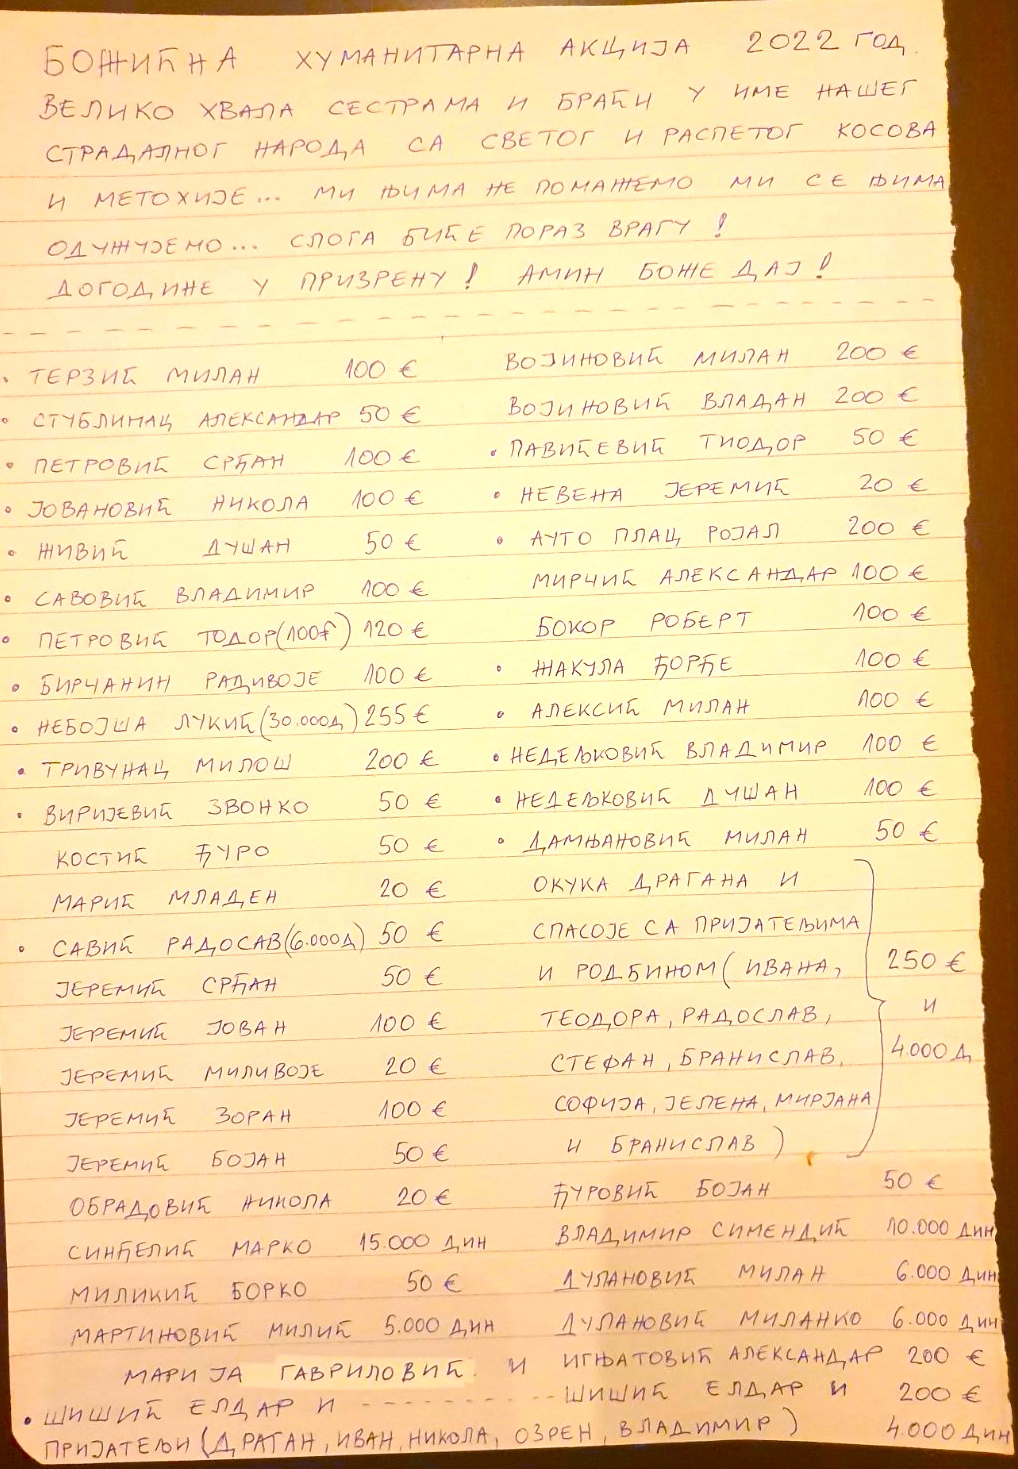 БОЖИЋНА ХУМАНИТАРНА АКЦИЈА 2022 ГОД.
ВЕЛИКО ХВАЛА СЕСТРАМА И БРАЋИ У ИМЕ НАШЕГ
СТРАДАЛНОГ НАРОДА СА СВЕТОГ И РАСПЕТОГ КОСОВА
И МЕТОХИЈЕ... МИ ЊИМА НЕ ПОМАЖЕМО МИ СЕ ЊИМА
ОДУЖУЈЕМО... СЛОГА БИЋЕ ПОРАЗ ВРАГУ !
ДОГОДИНЕ У ПРИЗРЕНУ ! АМИН БОЖЕ ДАЈ !
• ТЕРЗИЋ МИЛАН 100 €
• СТУБЛИНАЦ АЛЕКСАНДАР 50 €
• ПЕТРОВИЋ СРЂАН 100 €
• ЈОВАНОВИЋ НИКОЛА 100 €
• ЖИВИЋ ДУШАН 50 €
• САВОВИЋ ВЛАДИМИР 100 €
• ПЕТРОВИЋ ТОДОР(100₣) 120 €
• БИРЧАНИН РАДИВОЈЕ 100 €
• НЕБОЈША ЛУКИЋ(30.000Д) 255 €
• ТРИВУНАЦ МИЛОШ 200 €
• ВИРИЈЕВИЋ ЗВОНКО 50 €
КОСТИЋ ЂУРО 50 €
МАРИЋ МЛАДЕН 20 €
• САВИЋ РАДОСАВ(6.000Д) 50 €
ЈЕРЕМИЋ СРЂАН 50 €
ЈЕРЕМИЋ ЈОВАН 100 €
ЈЕРЕМИЋ МИЛИВОЈЕ 20 €
ЈЕРЕМИЋ ЗОРАН 100 €
ЈЕРЕМИЋ БОЈАН 50 €
ОБРАДОВИЋ НИКОЛА 20 €
СИНЂЕЛИЋ МАРКО 15.000 ДИН
МИЛИКИЋ БОРКО 50 €
МАРТИНОВИЋ МИЛИЋ 5.000 ДИН
ВОЈИНОВИЋ МИЛАН 200 €
ВОЈИНОВИЋ ВЛАДАН 200 €
• ПАВИЋЕВИЋ ТИОДОР 50 €
• НЕВЕНА ЈЕРЕМИЋ 20 €
• АУТО ПЛАЦ РОЈАЛ 200 €
МИРЧИЋ АЛЕКСАНДАР 100 €
БОКОР РОБЕРТ 100 €
• ЖАКУЛА ЂОРЂЕ 100 €
• АЛЕКСИЋ МИЛАН 100 €
• НЕДЕЉКОВИЋ ВЛАДИМИР 100 €
• НЕДЕЉКОВИЋ ДУШАН 100 €
• ДАМЊАНОВИЋ МИЛАН 50 €
ОКУКА ДРАГАНА И
СПАСОЈЕ СА ПРИЈАТЕЉИМА
И РОДБИНОМ( ИВАНА, 250 €
ТЕОДОРА, РАДОСЛАВ, И
СТЕФАН, БРАНИСЛАВ, 4.000 Д
СОФИЈА, ЈЕЛЕНА, МИРЈАНА
И БРАНИСЛАВ )
ЂУРОВИЋ БОЈАН 50 €
ВЛАДИМИР СИМЕНДИЋ 10.000 ДИН
ДУЛАНОВИЋ МИЛАН 6.000 ДИН
ДУЛАНОВИЋ МИЛАНКО 6.000 ДИН
МАРИЈА ГАВРИЛОВИЋ И ИГЊАТОВИЋ АЛЕКСАНДАР 200 €
• ШИШИЋ ЕЛДАР И - - - - - - - - - ШИШИЋ ЕЛДАР И 200 €
ПРИЈАТЕЉИ(ДРАГАН, ИВАН, НИКОЛА, ОЗРЕН, ВЛАДИМИР) 4.000 ДИН